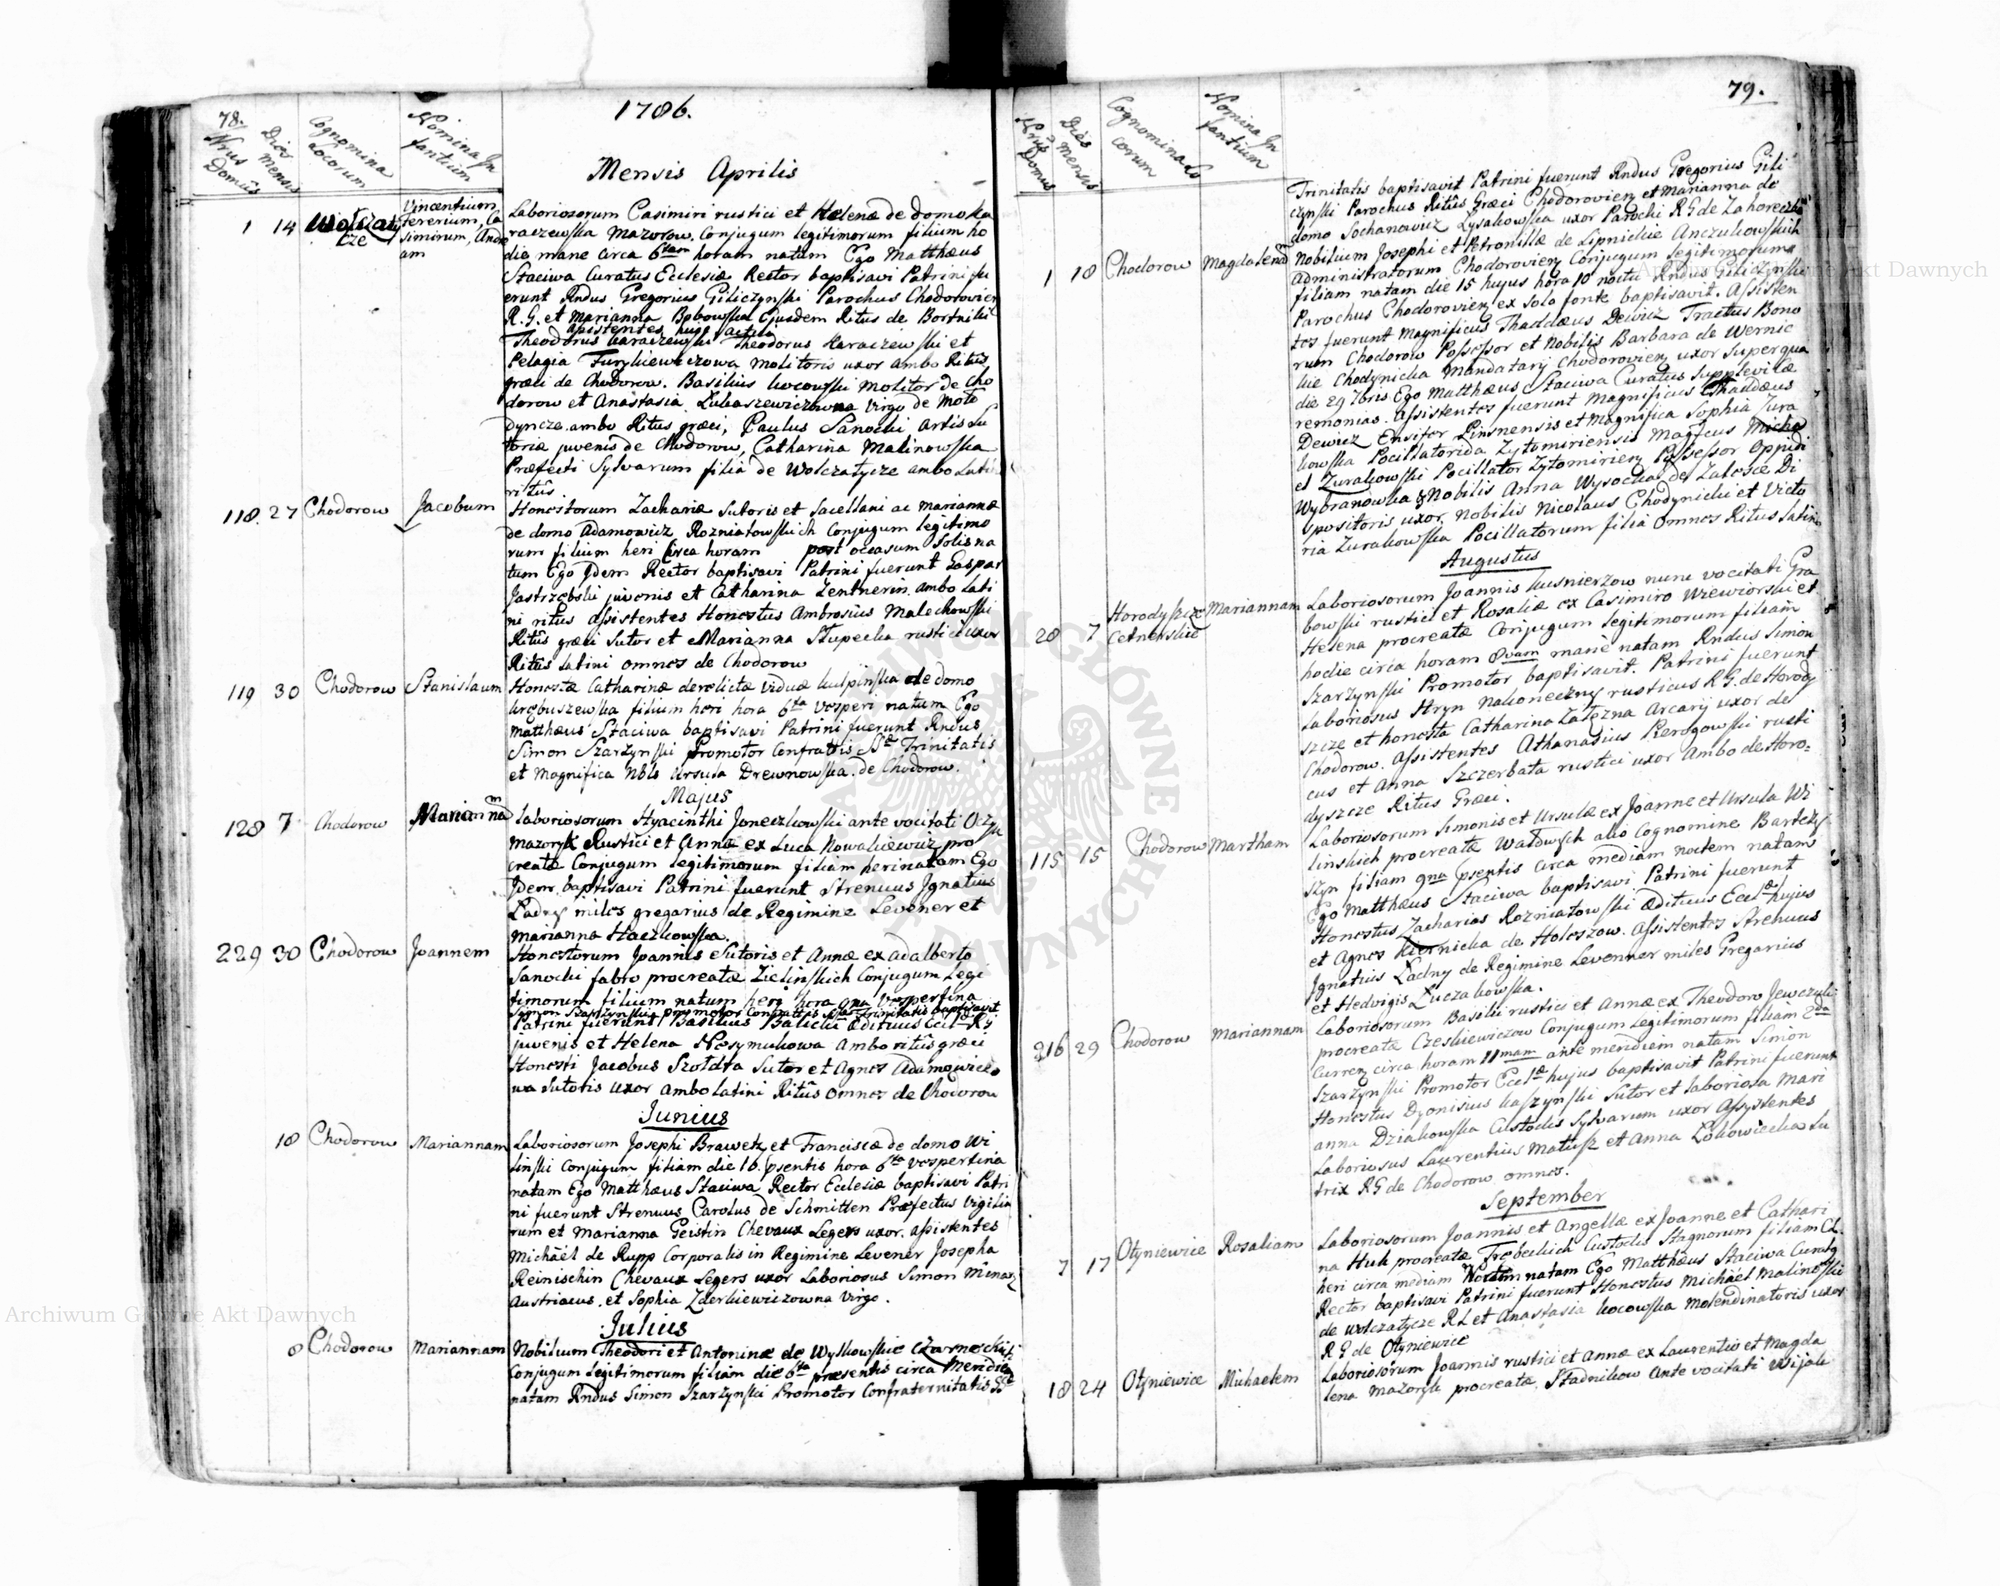 78.
Nrus Domûs
Dies Mensis
Cognomina Locorum
Nomina Infantium
1786.
Mensis Aprilis
1 14 Wolczatycze Vincentium, Fererium, Casimirum, Andream
Laboriosorum Casimiri rustici et Helenæ de domo Ka
raczewska Mazorow. Conjugum legitimorum filium ho
die mane circa 6tam horam natum Ego Matthæus
Staciwa Curatus Ecclesiæ Rector baptisavi Patrini fu
erunt Rndus Gregorius Giliczynski Parochus Chodorovien
R. G. et Marianna Bobowska Ejusdem Ritus de Bortniki
assistentes huic actui
Theodorus Karaczewski Theodorus Karaczewski et
Pelagia Furykiewiczowa Molitoris uxor ambo Ritûs
græci de Chodorow. Basilius Kocowski Molitor de Cho
dorow et Anastasia Lukaszewiczowna Virgo de Moło
dyncze ambo Ritus græci, Paulus Sanocki Artis Su
toriæ juvenis de Chodorow, Catharina Malinowska
Præfecti Sylvarum filia de Wolczatycze ambo Latini
ritûs.
118. 27 Chodorow Jacobum
Honestorum Zachariæ Sutoris et Sacellani ac Mariannæ
de domo Adamowicz Rozniatowskich Conjugum legitimo
rum filium heri circa horam post occasum Solis na
tum Ego Idem Rector baptisavi Patrini fuerunt Gaspar
Jastrzębski juvenis et Catharina Zentnerin ambo Lati
ni ritus assistentes Honestus Ambrosius Malechowski
Ritûs græci Sutor et Marianna Stupecka rustici uxor
Ritûs Latini omnes de Chodorow
119 30 Chodorow Stanislaum
Honestæ Catharinæ derelictæ viduæ Kulpinska de domo
Krębuszewska filium heri hora 6ta Vesperi natum Ego
Matthæus Staciwa baptisavi Patrini fuerunt Rndus
Simon Szarzynski Promotor Confrattis SSæ Trinitatis
et Magnifica Nbls Ursula Drewnowska de Chodorow.
Majus
128 7 Chodorow Mariannam
Laboriosorum Hyacinthi Joneczkowski ante vocitati
Mazoryk Rustici et Annæ ex Luca Nowakiewicz pro
creatæ Conjugum legitimorum filiam heri natam Ego
Idem baptisavi Patrini fuerunt Strenuus Ignatius
Ładny miles gregarius de Regimine Levener et
Marianna Haczkowska.
229 30 Chodorow Joannem
Honestorum Joannis Sutoris et Annæ ex Adalberto
Sanocki fabro procreatæ Zielinskich Conjugum Legi
timorum filium natum heri hora 9na Vespertina
Simon Szarzynski promotor Confrattis SSæ Trinitatis baptisavit
Patrini fuerunt Basilius Balicki Ædituus Ecclæ RG
juvenis et Helena Nosymukowa Ambo ritûs græci
Honesti Jacobus Szołdra Sutor et Agnes Adamowiczo
wa Sutoris uxor ambo Latini Ritûs omnes de Chodorow
Junius
18 Chodorow Mariannam
Laboriosorum Josephi Brawetz et Franciscæ de domo Wi
linski Conjugum filiam die 16. psentis hora 6ta vespertina
natam Ego Matthæus Staciwa Rector Ecclesiæ baptisavi Patri
ni fuerunt Strenuus Carolus de Schmitten Præfectus Vigilia
rum et Marianna Geistin Chevaux Legers uxor. assistentes
Michael de Rupp Corporalis in Regimine Levener Josepha
Reinischin Chevaux Legers uxor Laboriosus Simon
Austriacus, et Sophia Zderkiewiczowna Virgo.
Julius
8 Chodorow Mariannam
Nobilium Theodori et Antoninæ de Wyskowskie Czarneckich
Conjugum legitimorum filiam die 6ta præsentis circa Meridiem
natam Rndus Simon Szarzynski Promotor Confraternitatis SSæ
79.
Nrus Domus
Dies Mensis
Cognomina Locorum
Nomina Infantium
Trinitatis baptisavit Patrini fuerunt Rndus Gregorius Gili
czynski Parochus Ritûs Græci Chodorovien et Marianna de
domo Sochanowicz Lysakowska uxor Parochi R G de Zahoreczko
1 18 Chodorow Magdalenam
Nobilium Josephi et Petronillæ de Lipnickie Anczukowskich
Administratorum Chodorovien Conjugum legitimorum
filiam natam die 15 hujus hora 10 noctu Rndus Giliczynski
Parochus Chodorovien ex solo fonte baptisavit. Assisten
tes fuerunt Magnificus Thaddæus Dewicz Tractus Bono
rum Chodorow Possessor et Nobilis Barbara de Wernic
kie Chodynicka Mandatarij Chodorovien uxor super qua
die 29 7bris Ego Matthæus Staciwa Curatus supplevi cæ
remonias. Assistentes fuerunt Magnificus Thaddæus
Dewicz Ensifer Pinsnensis et Magnifica Sophia Zura
kowska Pocillatorida Zytomiriensis Magficus Micha
el Zurakowski Pocillator Zytomirien Possessor Oppidi
Wybranowka & Nobilis Anna Wysocka de Zalesce Di
spositoris uxor, Nobilis Nicolaus Chodynicki et Victo
ria Zurakowska Pocillatorum filia omnes Ritus Latini
Augustus
28 7 Horodyszcze Cetnerskie Mariannam
Laboriosorum Joannis Kusnierzow nunc vocitati Gra
bowski rustici et Rosaliæ ex Casimiro Wiewiorski et
Helena procreatæ Conjugum legitimorum filiam
hodie circa horam 8vam manè natam Rndus Simon
Szarzynski Promotor baptisavit. Patrini fuerunt
Laboriosus Hryn Nakoneczny rusticus R G. de Horody
szcze et honesta Catharina Zalezna Arcarij uxor de
Chodorow. Assistentes Athanasius Pierogowski rusti
cus et Anna Szczerbata rustici uxor Ambo de Horo=
dyszcze Ritus Græci.
115 15 Chodorow Martham
Laboriosorum Simonis et Ursulæ ex Joanne et Ursula Wi
linskich procreatæ Wałowych alio Cognomine Bartczy
szyn filiam 9na psentis circa mediam noctem natam
Ego Matthæus Staciwa baptisavi Patrini fuerunt
Honestus Zacharias Rozniatowski Ædituus Ecclæ hujus
et Agnes Kiernicka de Holeszow. Assistentes Strenuus
Ignatius Ładny de Regimine Levenner miles Gregarius
et Hedvigis Luczakowska.
216 29 Chodorow Mariannam
Laboriosorum Basilii rustici et Annæ ex Theodoro Jewczuk
procreatæ Czeskiewiczow Conjugum legitimorum filiam 2da
Curren circa horam 11mam ante meridiem natam Simon
Szarzynski Promotor Ecclæ hujus baptisavit Patrini fuerunt
Honestus Dyonisius Kaszynski Sutor et Laboriosa Mari
anna Dziakowska Custodis Sylvarum uxor Assystentes
Laboriosus Laurentius Matusz et Anna Lokowiecka Su
trix R G de Chodorow omnes.
September
7 17 Otyniewice Rosaliam
Laboriosorum Joannis et Angellæ ex Joanne et Cathari
na Huk procreatæ Trębeckich Custodis Stagnorum filiam CL.
heri circa mediam Noctem natam Ego Matthæus Staciwa Curatq
Rector baptisavi Patrini fuerunt Honestus Michael Malinowski
de Wolczatycze R L et Anastasia Kocowska Molendinatoris uxor
R G de Otyniewice
18 24 Otyniewice Michaelem
Laboriosorum Joannis rustici et Annæ ex Laurentio et Magda
lena Mazoryk procreatæ Stadnikow Ante vocitati